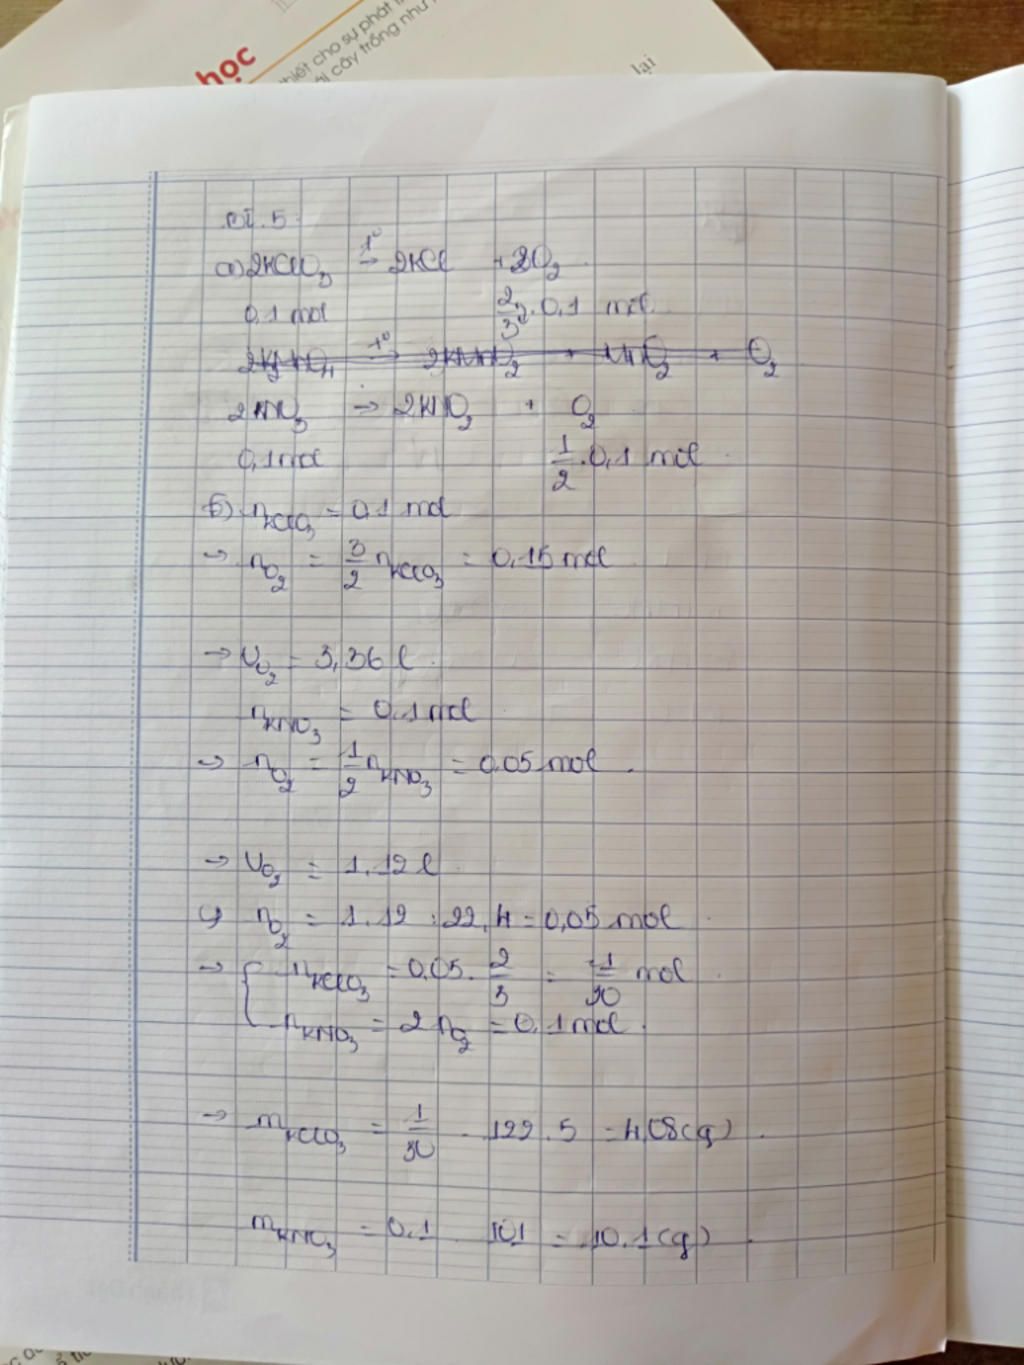 học
thiết cho sự phát
cây trồng như
lại
a) 2KClO3 t° → 2KCl + 3O2
0,1 mol 2/3 . 0,1 mol
2KNO3 → 2KNO2 + O2
0,1 mol 1/2 . 0,1 mol
b) nKClO3 = 0,1 mol
→ nO2 = 3/2 nKClO3 = 0,15 mol
→ VO2 = 3,36 l
nKNO3 = 0,1 mol
→ nO2 = 1/2 nKNO3 = 0,05 mol
→ VO2 = 1,12 l
c) nO2 = 1,12 : 22,4 = 0,05 mol
→ { nKClO3 = 0,05 . 2/3 = 1/30 mol
nKNO3 = 2 nO2 = 0,1 mol
→ mKClO3 = 1/30 . 122,5 = 4,08 (g)
mKNO3 = 0,1 . 101 = 10,1 (g)